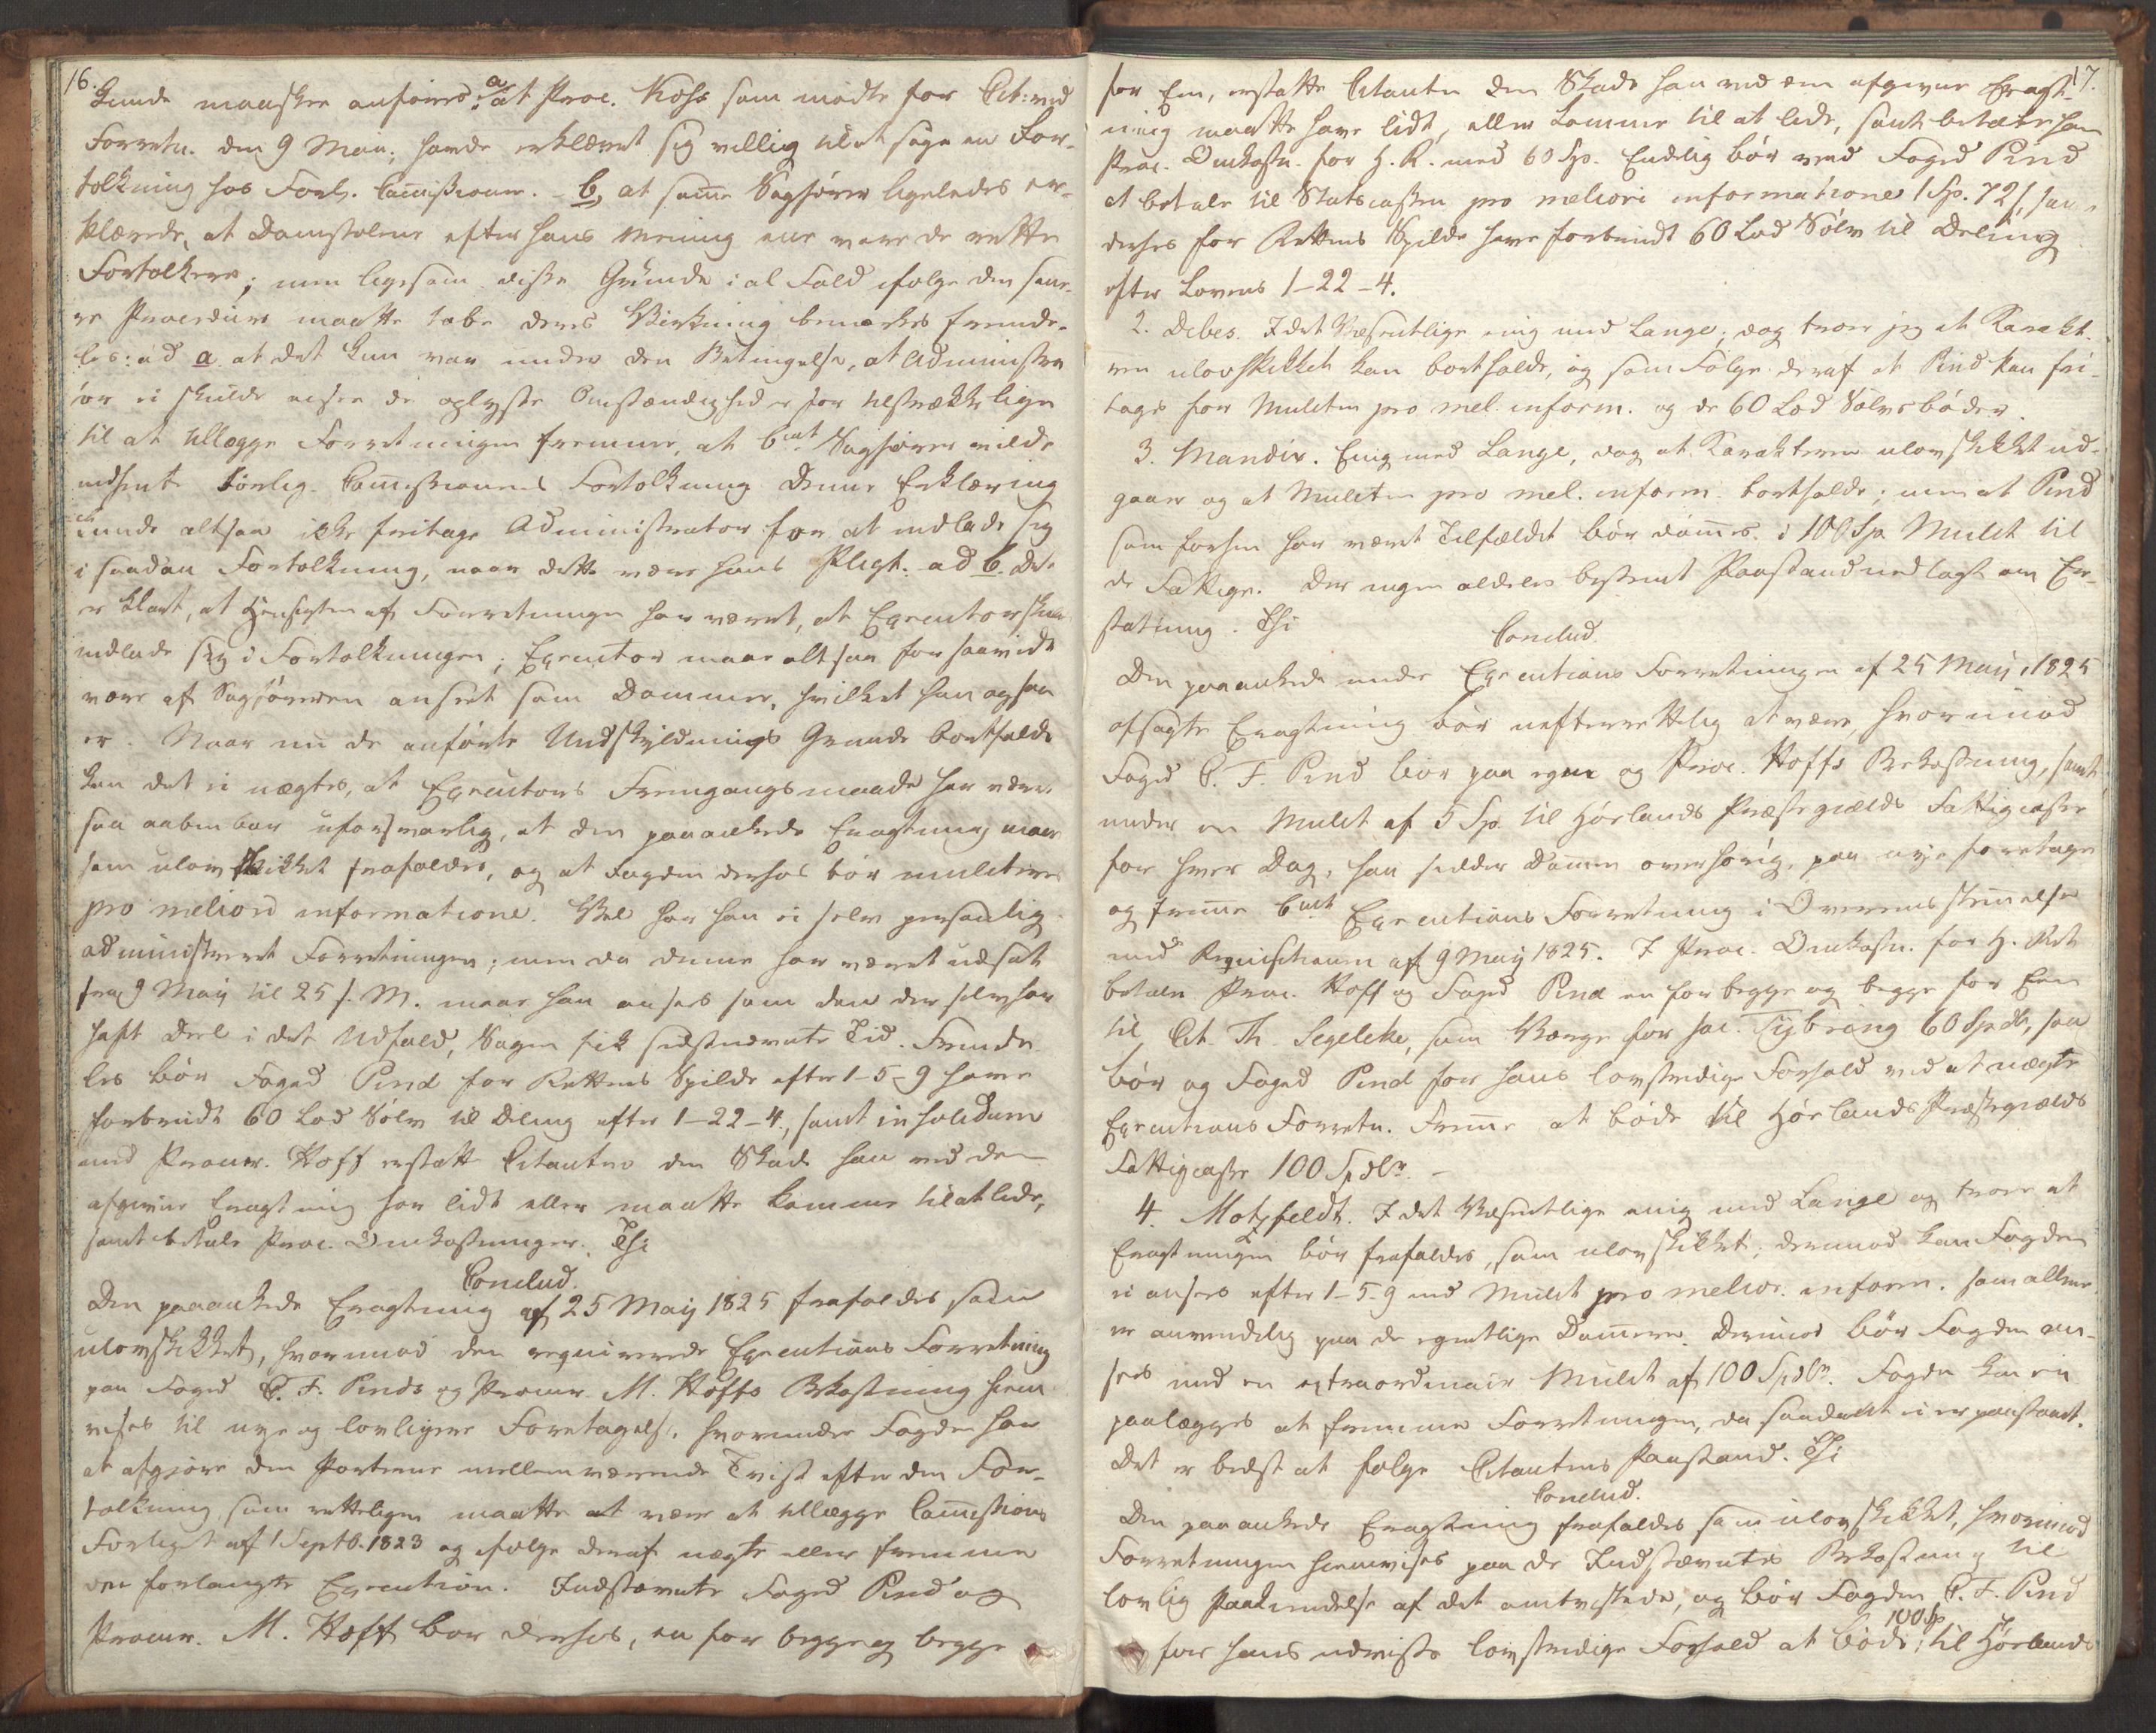 16.
kunde maaskee anføres: a, at Proc. Hoff som mødte for Cit: ved
Forretn. den 9 Maii, havde erklæret sig villig til at søge en For-
tolkning hos Forl. Com̅issionen. - b, at sam̅e Sagfører ligeledes er-
klærede, at Domstolene efter hans Mening ene vare de rette
Fortolkere; men ligesom disse Grunde i al Fald ifølge den sene-
re Procedure maatte tabe deres Virkning bemærkes fremde-
les: ad a at det kun var under den Betingelse, at Administra-
tor ei skulde ansee de oplyste Omstændigheder for tilstrækkelige
til at tillægge Forretningen Fremme, at Citant. Sagfører vilde
indhente Forlig. Com̅issionens Fortolkning. Denne Erklæring
kunde altsaa ikke fritage Administrator for at indlade sig
i saadan Fortolkning, naar dette var hans Pligt. ad b. Det
er klart, at Hensigten af Forretningen har været, at Executor skulde
indlade sig i Fortolkningen; Executor maae altsaa for saavidt
være af Sagføreren anseet som Dommer, hvilket han ogsaa
er. Naar nu de anførte Undskyldnings Grunde bortfalde
kan det ei nægtes, at Executors Fremgangsmaade har været
saa aabenbar uforsvarlig, at den paaankede Eragtning maae
som ulovskikket frafaldes, og at Fogden derhos bør mulcteres
pro meliori informatione. Vel har han ei selv personlig
administreret Forretningen; men da denne har været udsat
fra 9 Maij til 25 s. M. maae han ansees som den der selv har
havt Deel i det Udfald, Sagen fik sidstnævnte Tid. Fremde-
les bør Foged Pind for Rettens Spilde efter 1-5-9 have
forbrudt 60 Lod Sølv til Deling efter 1-22-4., samt in solidum
med Procur. Hoff erstatte Citanten den Skade han ved den
afgivne Eragtning har lidt eller maatte komme til at lide,
samt betale Proc. Omkostninger. Thi
Conclud.
Den paaankede Eragtning af 25 Maij 1825 frafaldes som
ulovskikket, hvorimod den reqvirerede Executions Forretning
paa Foged C. F. Pinds og Procur. M. Hoffs Bekostning hjem-
vises til nye og lovligere Foretagelse, hvorunder Fogden har
at afgjøre den Parterne mellemværende Tvist efter den For-
tolkning, som rettelig maatte at være at tillægge Com̅issions
Forliget af 1 Septb. 1823 og ifølge deraf nægte eller fremme
den forlangte Execution. Indstævnte Foged Pind og
Procur. M. Hoff bør derhos, en for begge og begge
17.
for Een, erstatte Citanten den Skade han ved den afgivne Eragt-
ning maatte have lidt, eller komme til at lide, samt betale ham
Proc. Omkostn. for H. R. med 60 Sp. Endelig bør ved Foged Pind
at betale til Statscassen pro meliori informatione 1 Sp. 72 s, saa-
derhos for Rettens Spilde have forbrudt 60 Lod Sølv til Deling
efter Lovens 1-22-4.
2. Debes. I det Væsentlige enig med Lange, dog troer jeg at Karakt.
en ulovskikket kan bortfalde, og som Følge deraf at Pind kan fri-
tages for Mulcten pro mel. inform. og de 60 Lod Sølvs bøder.
3. Mandix. Enig med Lange, dog at Karakteren ulovskikket ud-
gaaer og at Mulcten pro mel. inform. bortfalde; men at Pind
som forhen har været Tilfældet bør dom̅es i 100 Sp. Mulct til
de Fattige. Der ingen aldeles bestemt Paastand nedlagt om Er-
statning. Thi
Conclud.
Den paaankede under Executions Forretningen af 25 Maij 1825
afsagte Eragtning bør uefterrettelig at være, hvorimod
Foged C. F. Pind bør paa egen og Proc. Hoffs Bekostning, samt
under en Mulct af 5 Sp. til Hørlands Præstegjælds Fattigcasse
for hver Dag, han sidder Dom̅en overhørig, paa nye foretage
og frem̅e Citant Executions Forretning i Overensstem̅else
med Reqvisitionen af 9 Maij 1825. I Proc. Omkostn. for H. Ret
betaler Proc. Hoff og Foged Pind en for begge og begge for Een
til Cit. Th. Segelcke, som Værge for Jac. Tybring 60 Spdlr, saa
bør og Foged Pind for hans lovstridige Forhold ved at nægte
Executions Forretn. Frem̅e at bøde til Hørlands Præstegjælds
Fattigcasse 100 Spdlr. -
4. Motzfeldt. I det Væsentlige enig med Lange og troer at
Eragtningen bør frafaldes, som ulovskikket; derimod kan Fogden
ei ansees efter 1-5-9 med Mulct pro melior. inform. som allene
er anvendelig paa de egentlige Dom̅ere. Derimod bør Fogden an-
sees med en extraordinair Mulct af 100 Spdlr. Fogden kan ei
paalægges at fremme Forretningen, da saadant ei er paastaaet.
Det er bedst at følge Citantens Paastand. Thi
Conclud.
Den paaankede Eragtning frafaldes som ulovskikket, hvorimod
Forretningen hjemvises paa de Indstævntes Bekostning til
lovlig Paakjendelse af det omtvistede, og bør Fogden C. F. Pind
for hans udviste lovstridige Forhold at bøde 100 Sp til Hørlands